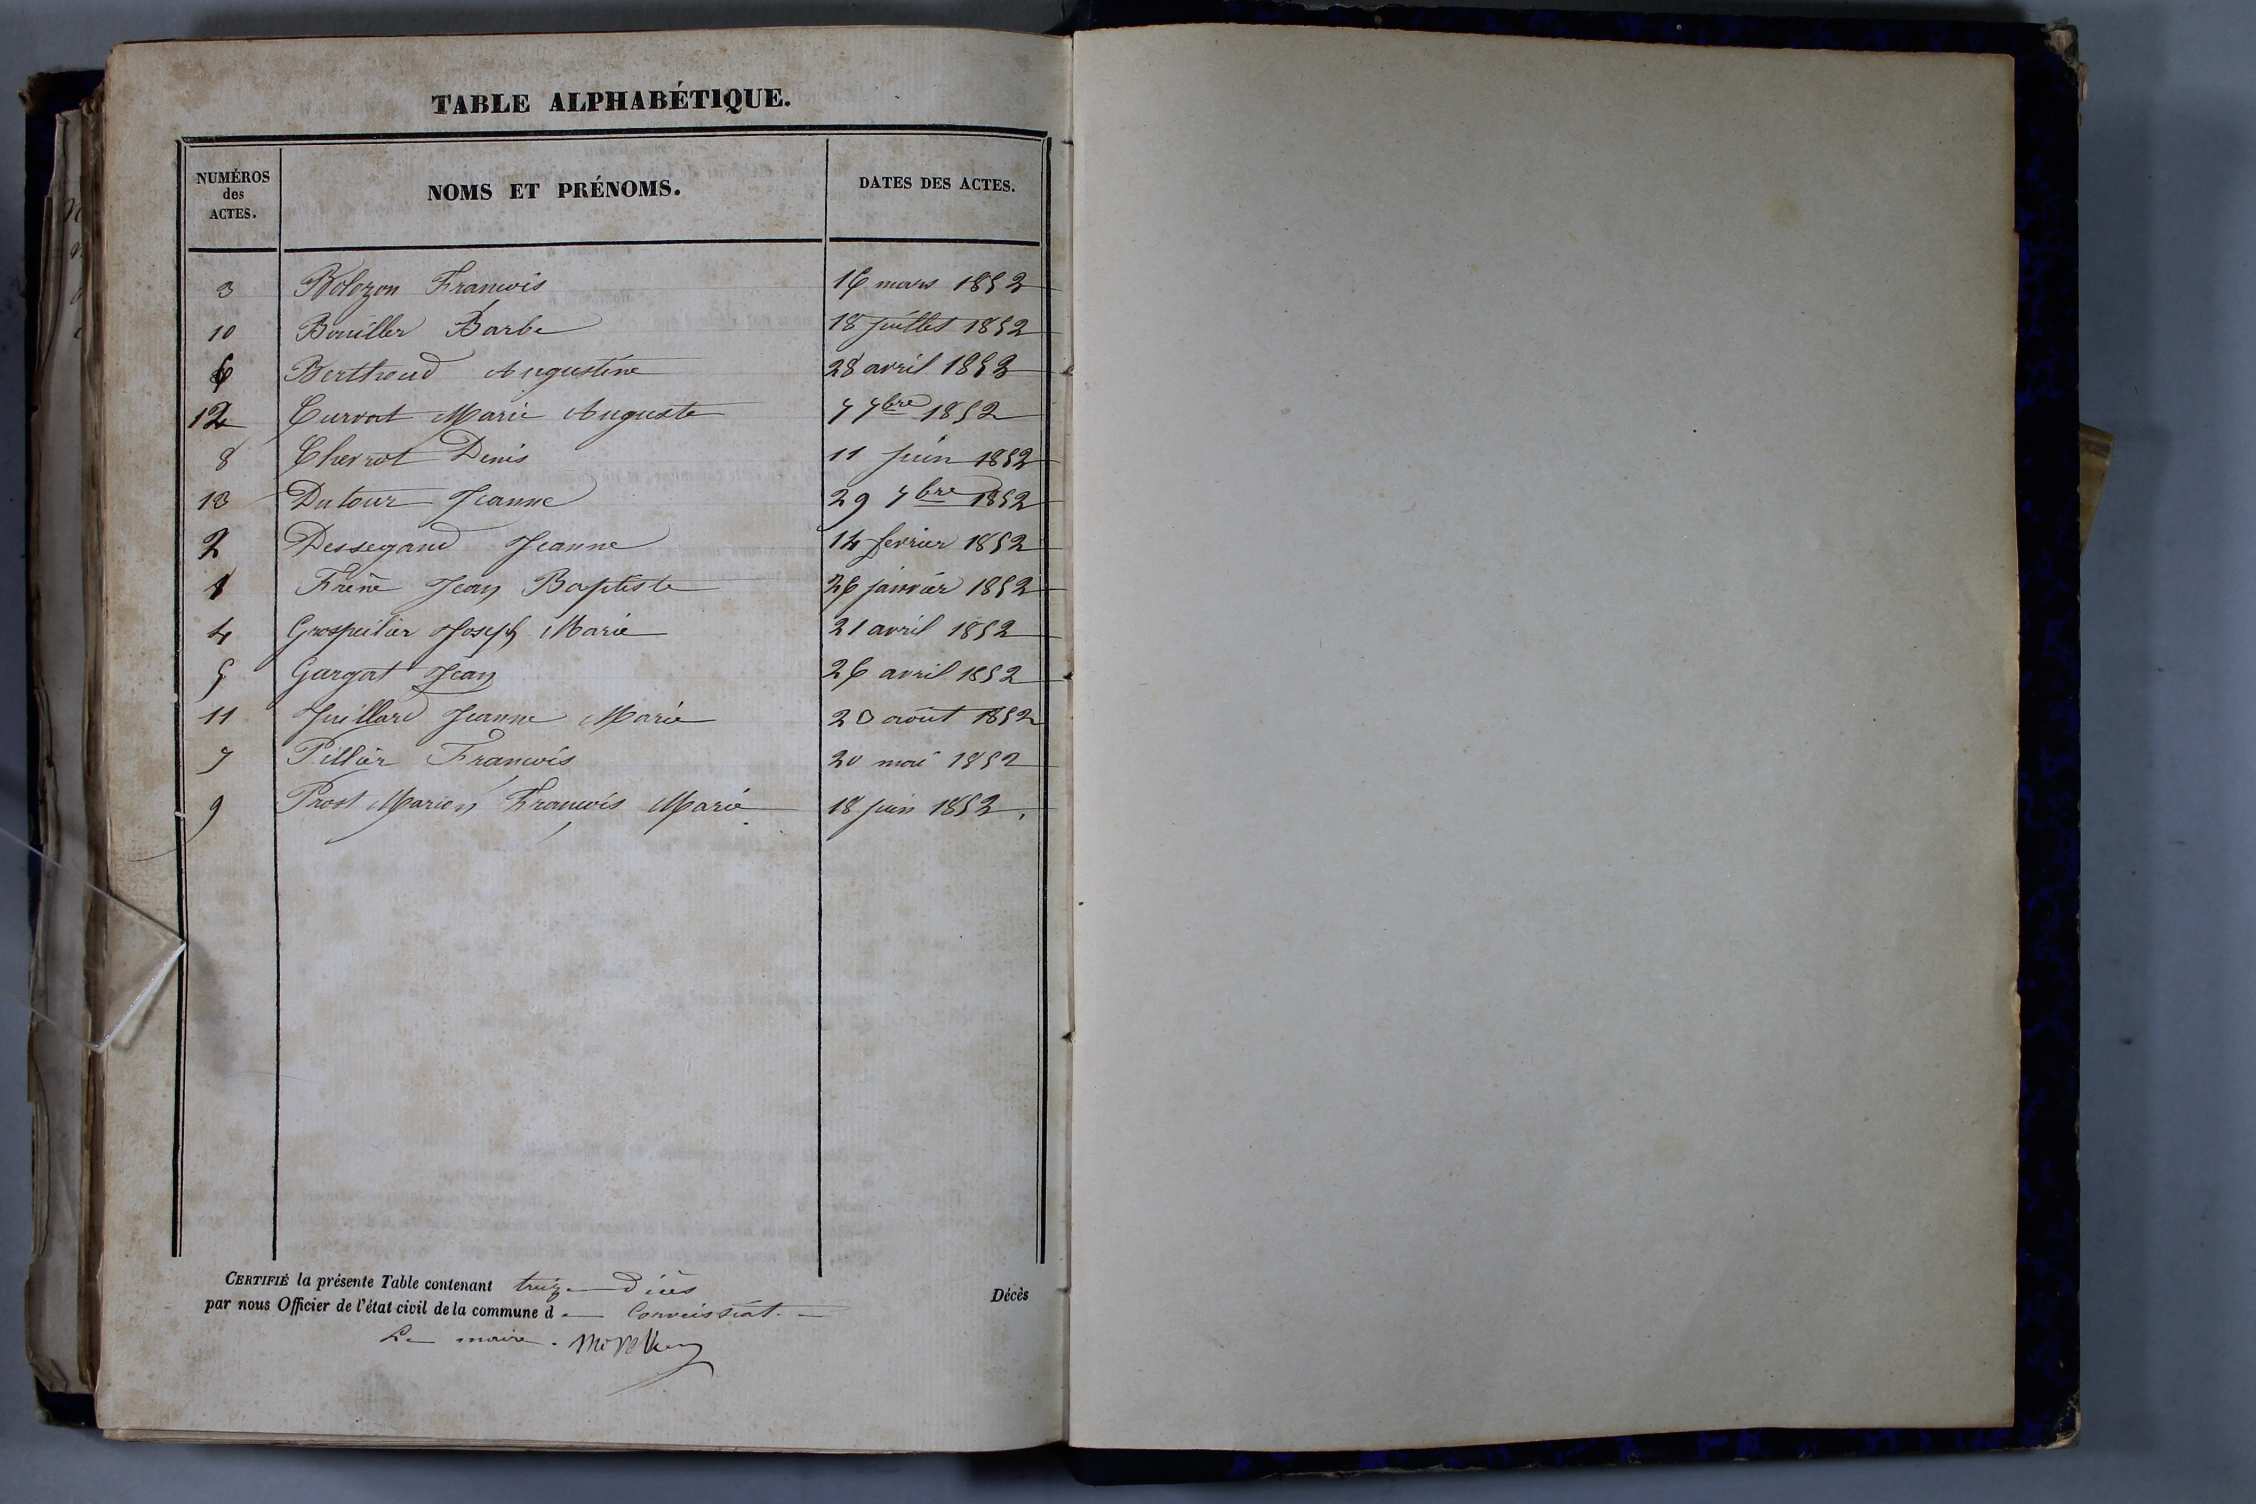 TABLE ALPHABÉTIQUE.
NUMÉROS des ACTES. NOMS ET PRÉNOMS. DATES DES ACTES.
3 Bolozon Francois 16 mars 1852
10 Bouiller Barbe 18 juillet 1852
6 Berthoud Augustine 28 avril 1852
12 Curvat Marie Auguste 7 7bre 1852
8 Chevrot Denis 11 juin 1852
13 Dutour Jeanne 29 7bre 1852
2 Dessegand Jeanne 14 fevrier 1852
1 Frêne Jean Baptiste 26 janvier 1852
4 Grospeilier Joseph Marie 21 avril 1852
5 Gargat Jean 26 avril 1852
11 Juillard Jeanne Marie 20 août 1852
7 Pillier Francois 20 mai 1852
9 Prost Marion Francois Marie 18 juin 1852.
CERTIFIÉ la présente Table contenant treize Décès
par nous Officier de l'état civil de la commune de Corveissiat.
Le maire.